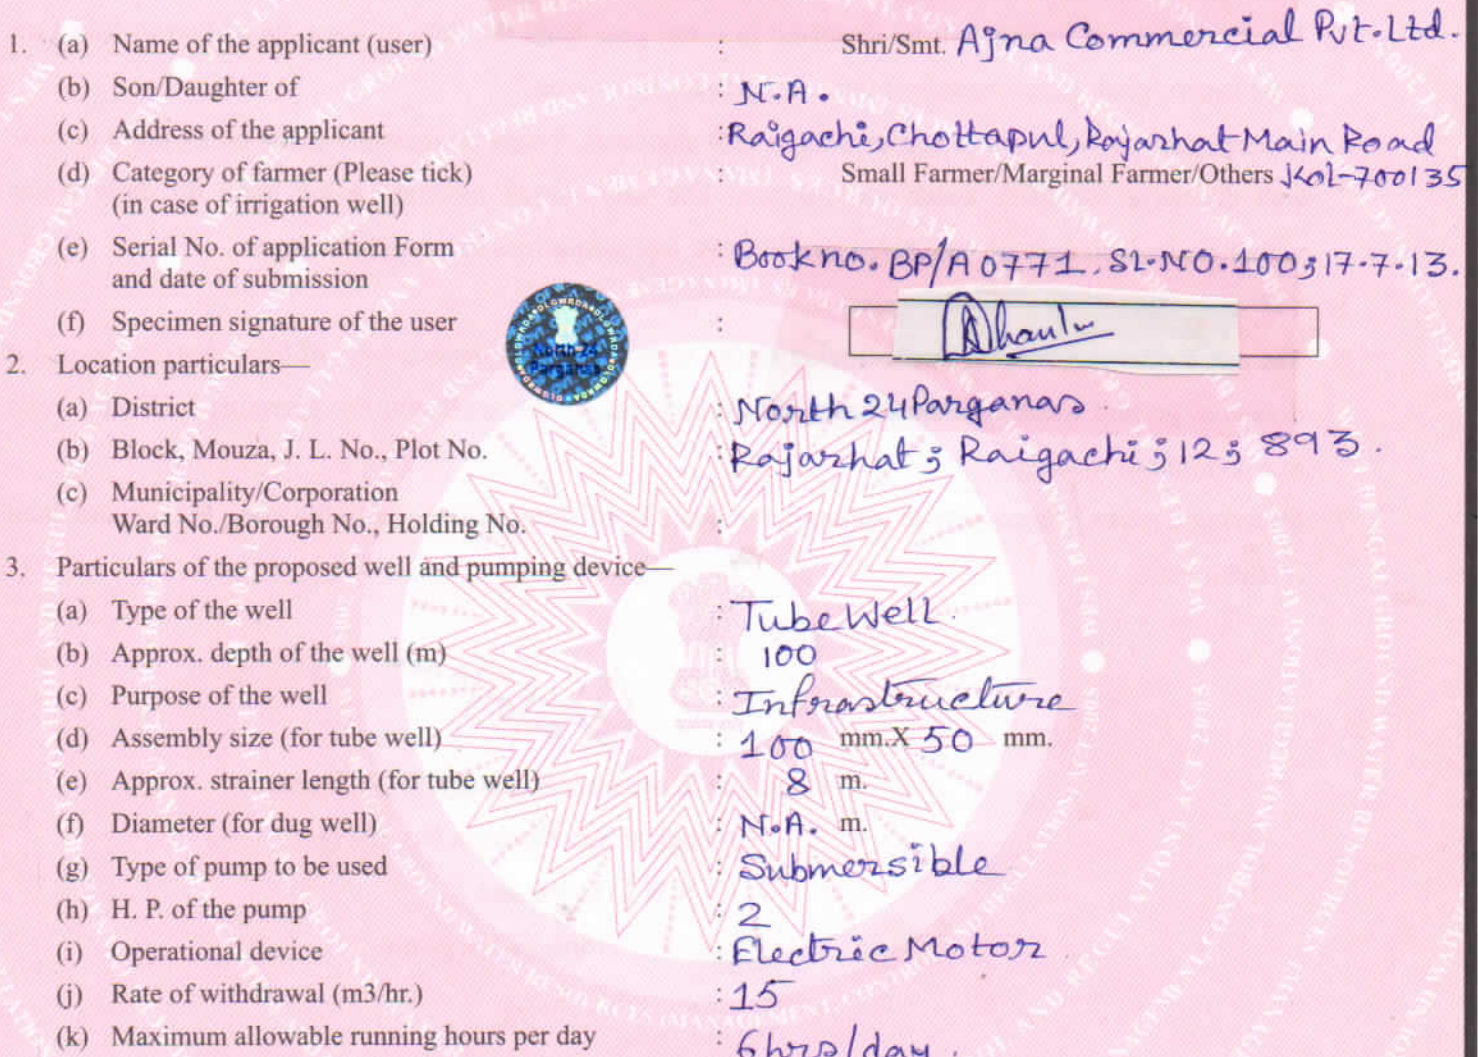 1. (a) Name of the applicant (user) : Shri/Smt. Ajna Commercial Pvt. Ltd.
(b) Son/Daughter of : N.A.
(c) Address of the applicant : Raigachi, Chottapul, Rajarhat Main Road
(d) Category of farmer (Please tick) : Small Farmer/Marginal Farmer/Others Kol-700135
(in case of irrigation well)
(e) Serial No. of application Form : Book no. BP/A 0771. SL.NO. 100; 17-7-13.
and date of submission
(f) Specimen signature of the user :
North 24
Parganas
2. Location particulars—
(a) District : North 24 Parganas
(b) Block, Mouza, J. L. No., Plot No. : Rajarhat; Raigachi; 12; 893.
(c) Municipality/Corporation
Ward No./Borough No., Holding No. :
3. Particulars of the proposed well and pumping device—
(a) Type of the well : Tube Well.
(b) Approx. depth of the well (m) : 100
(c) Purpose of the well : Infrastructure
(d) Assembly size (for tube well) : 100 mm.X 50 mm.
(e) Approx. strainer length (for tube well) : 8 m.
(f) Diameter (for dug well) : N.A. m.
(g) Type of pump to be used : Submersible
(h) H. P. of the pump : 2
(i) Operational device : Electric Motor
(j) Rate of withdrawal (m3/hr.) : 15
(k) Maximum allowable running hours per day : 6hrs/day.